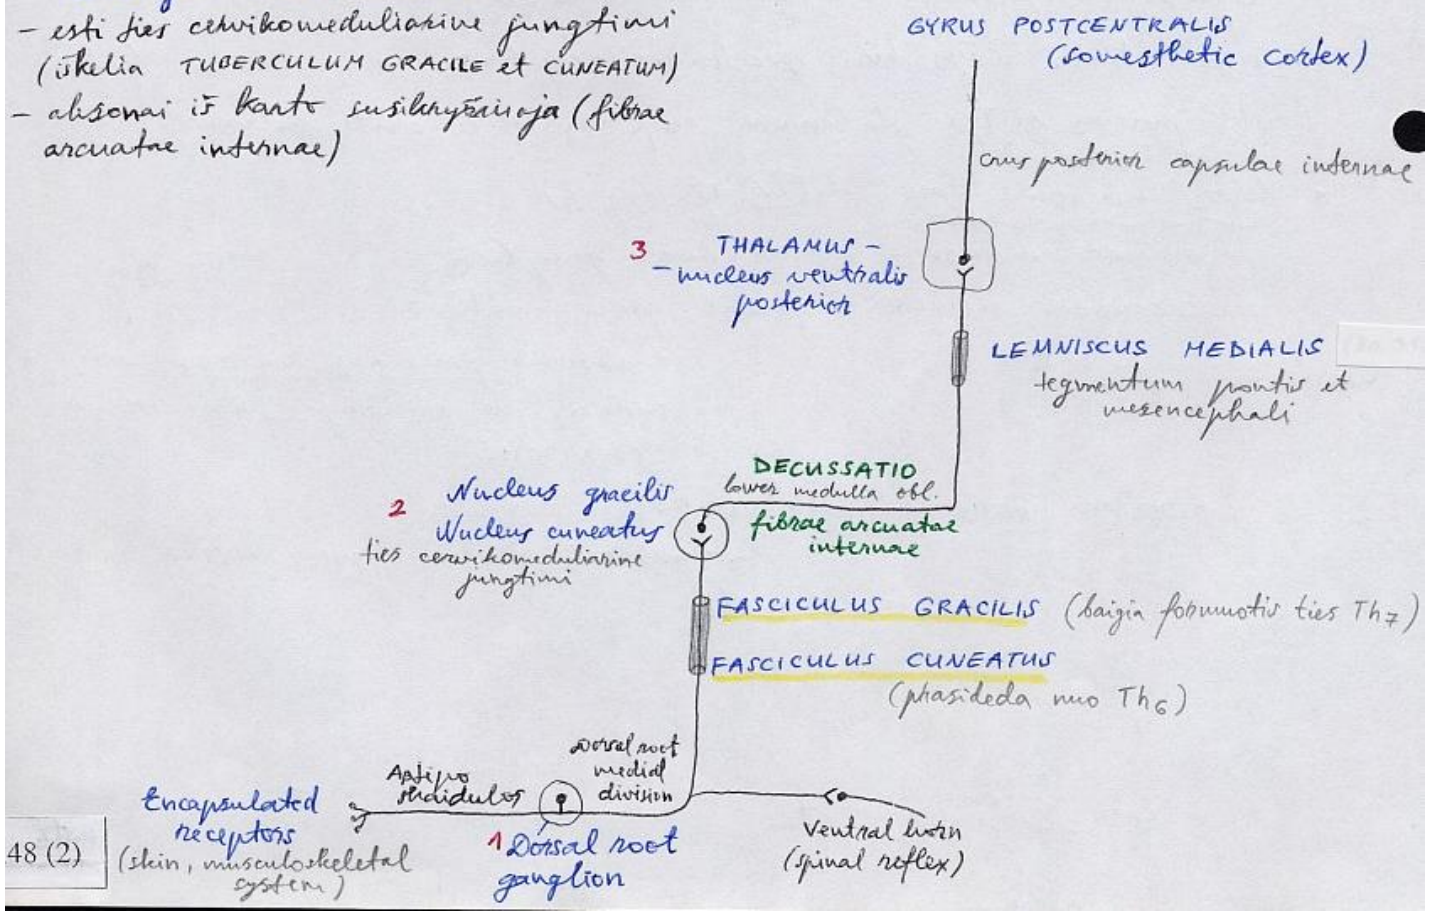 – esti ties cervikomeduliarine jungtimi
(iškelia TUBERCULUM GRACILE et CUNEATUM)
– aksonai iš karto susikryžiuoja (fibrae
arcuatae internae)
GYRUS POSTCENTRALIS
(somesthetic cortex)
crus posterior capsulae internae
3 THALAMUS –
– nucleus ventralis
posterior
LEMNISCUS MEDIALIS
tegmentum pontis et
mesencephali
DECUSSATIO
lower medulla obl.
fibrae arcuatae
internae
2 Nucleus gracilis
Nucleus cuneatus
ties cervikomeduliarine
jungtimi
FASCICULUS GRACILIS (baigia formuotis ties Th7)
FASCICULUS CUNEATUS
(prasideda nuo Th6)
Dorsal root
medial
division
A tipo
skaidulos
Encapsulated
receptors
(skin, musculoskeletal
system)
1 Dorsal root
ganglion
Ventral horn
(spinal reflex)
48 (2)